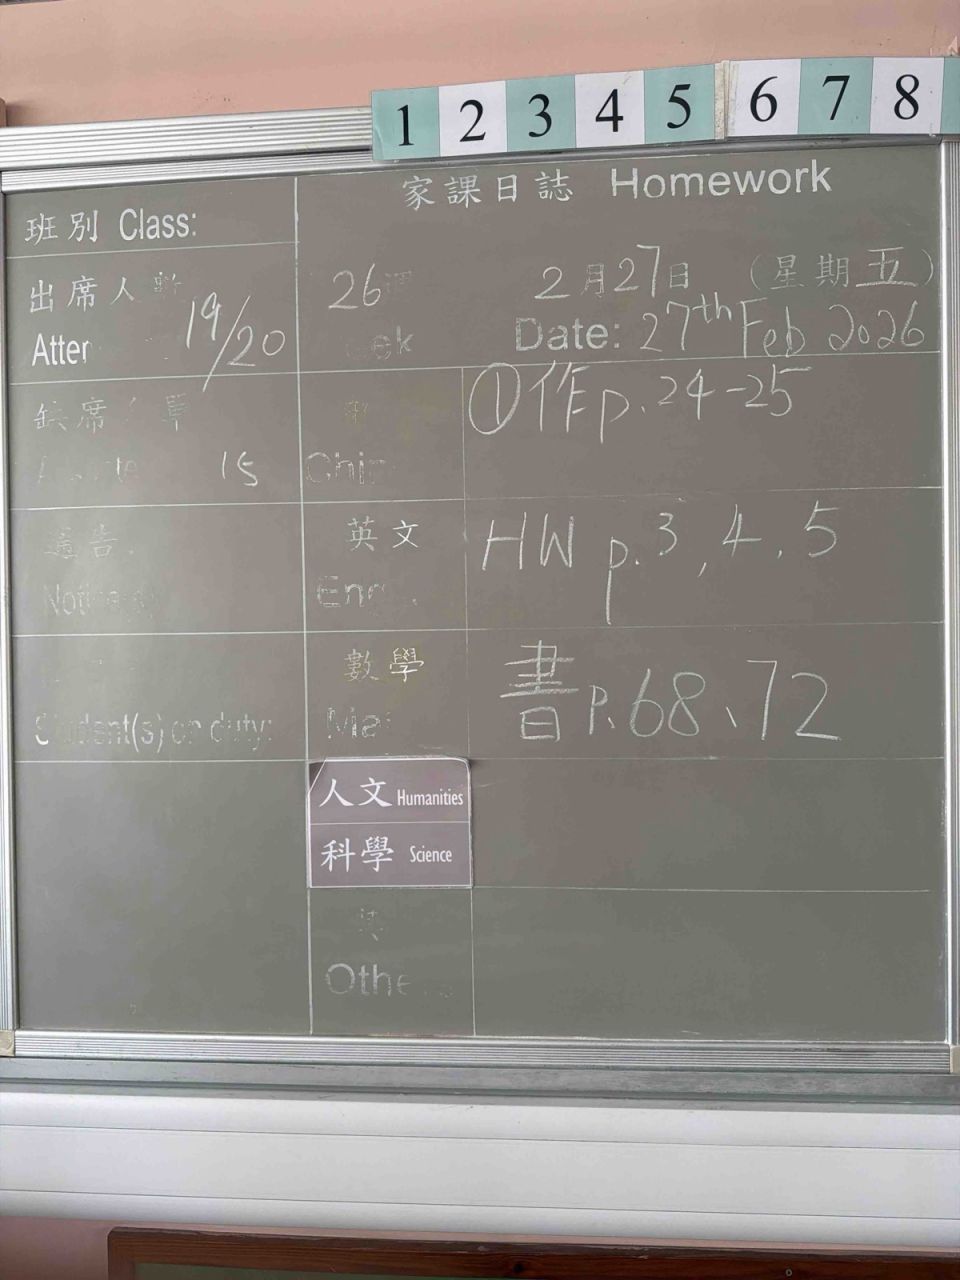 1 2 3 4 5 6 7 8
家課日誌 Homework
班別 Class:
出席人數
Atter
19/20
26週
eek
2月27日 (星期五)
Date: 27th Feb 2026
缺席 單
15
Chin
①作p.24-25
通告
Notice(s)
英文
Eng
HW p.3, 4, 5
Student(s) on duty:
數學
Ma
書P.68、72
人文 Humanities
科學 Science
其
Othe